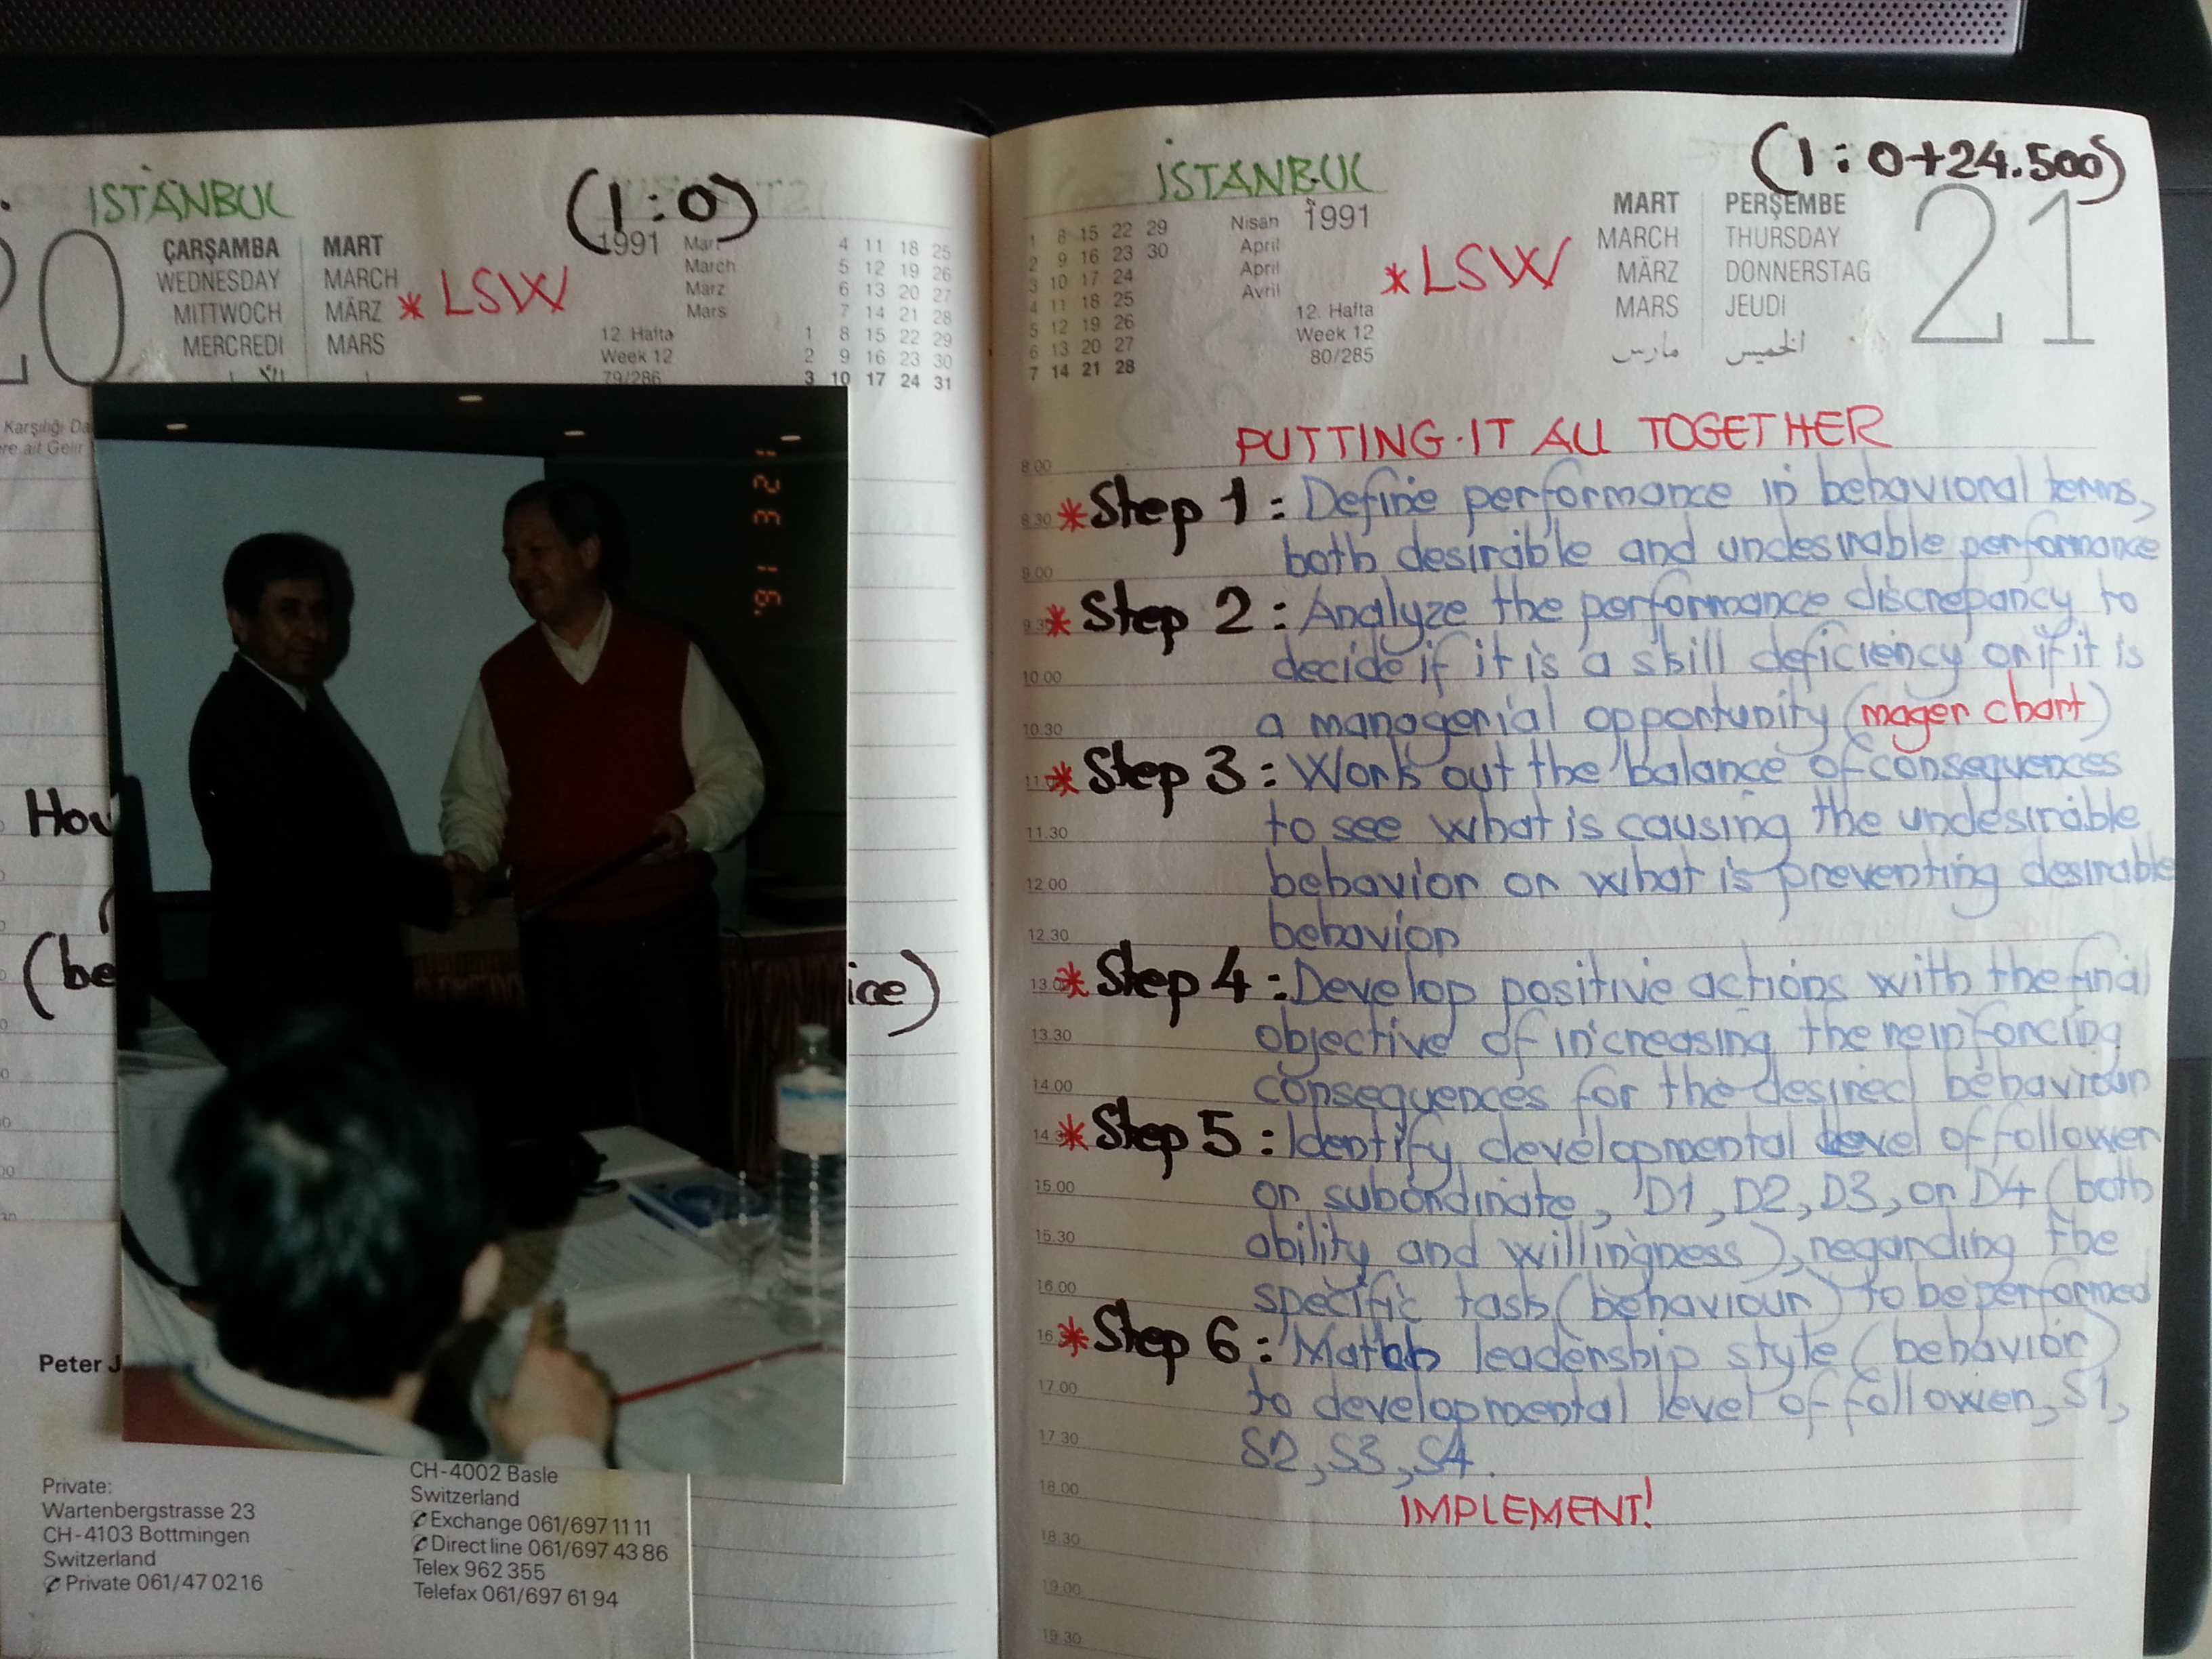 İSTANBUL
(1:0)
20
ÇARŞAMBA MART
WEDNESDAY MARCH
MITTWOCH MÄRZ
MERCREDI MARS
* LSW
1991 Mart
March
Marz
Mars
4 11 18 25
5 12 19 26
6 13 20 27
7 14 21 28
1 8 15 22 29
2 9 16 23 30
3 10 17 24 31
12. Hafta
Week 12
79/286
Karşılığı Da
ere ait Gelir
1 2 3 21 '91
How
(be
ice)
Peter J
Private:
Wartenbergstrasse 23
CH-4103 Bottmingen
Switzerland
✆ Private 061/47 02 16
CH-4002 Basle
Switzerland
✆ Exchange 061/697 11 11
✆ Direct line 061/697 43 86
Telex 962 355
Telefax 061/697 61 94
İSTANBUL
(1:0+24.500)
1 8 15 22 29
2 9 16 23 30
3 10 17 24
4 11 18 25
5 12 19 26
6 13 20 27
7 14 21 28
Nisan 1991
April
April
Avril
12. Hafta
Week 12
80/285
* LSW
MART PERŞEMBE
MARCH THURSDAY
MÄRZ DONNERSTAG
MARS JEUDI
مارس الخميس
21
PUTTING IT ALL TOGETHER
8.00
8.30 * Step 1: Define performance in behavioral terms,
both desirable and undesirable performance
9.00
9.30 * Step 2: Analyze the performance discrepancy to
decide if it is a skill deficiency or if it is
10.00
10.30 a managerial opportunity (mager chart)
* Step 3: Work out the balance of consequences
11.30 to see what is causing the undesirable
12.00 behavior or what is preventing desirable
12.30 behavior
* Step 4: Develop positive actions with the final
13.30 objective of increasing the reinforcing
14.00 consequences for the desired behaviour
* Step 5: Identify developmental level of follower
15.00 or subordinate, D1, D2, D3, or D4 (both
15.30 ability and willingness), regarding the
16.00 specific task (behaviour) to be performed
* Step 6: Match leadership style (behavior)
17.00 to developmental level of follower, S1,
17.30 S2, S3, S4.
18.00 IMPLEMENT!
18.30
19.00
19.30